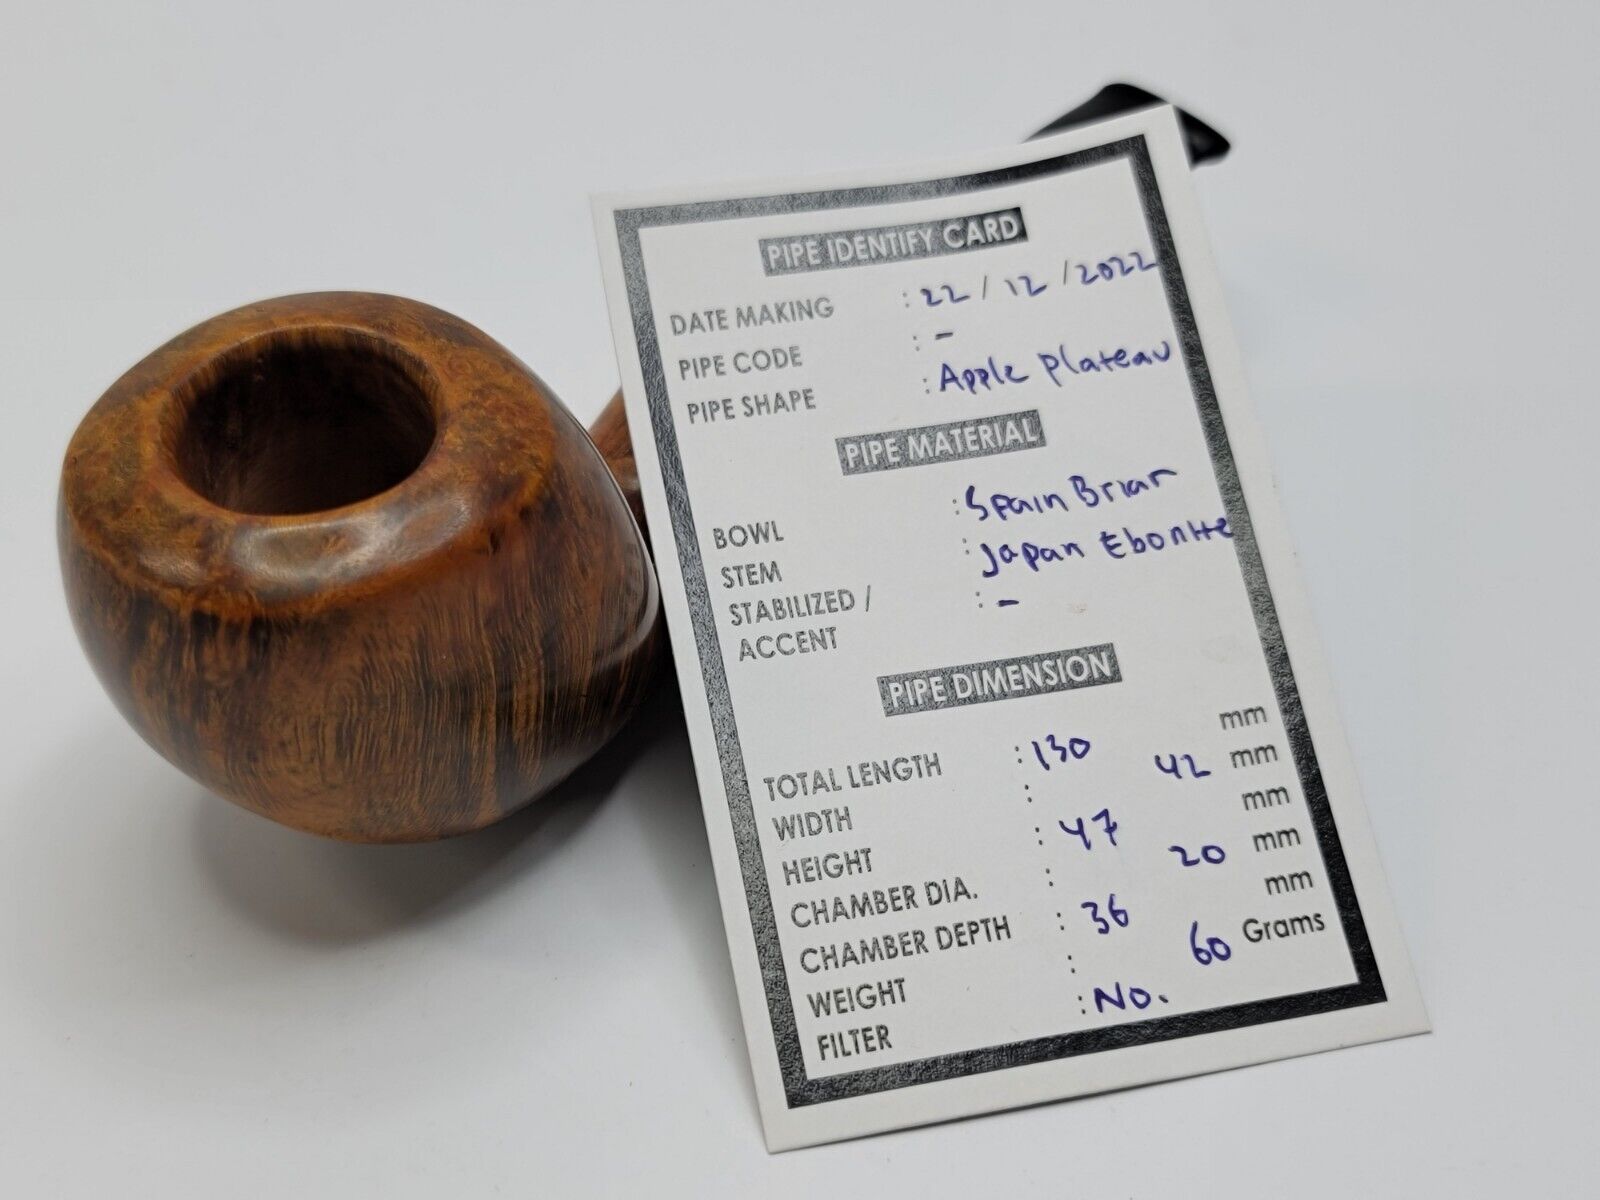 PIPE IDENTIFY CARD
DATE MAKING : 22 / 12 / 2022
PIPE CODE : -
PIPE SHAPE : Apple Plateau
PIPE MATERIAL
BOWL : Spain Briar
STEM : Japan Ebonite
STABILIZED / : -
ACCENT
PIPE DIMENSION
TOTAL LENGTH : 130 mm
WIDTH : 42 mm
HEIGHT : 47 mm
CHAMBER DIA. : 20 mm
CHAMBER DEPTH : 36 mm
WEIGHT : 60 Grams
FILTER : No.